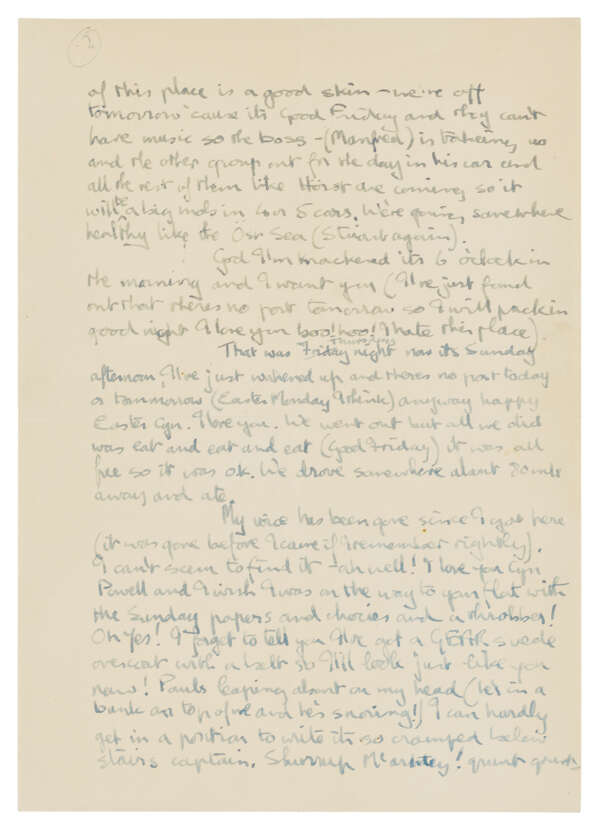 2
of this place is a good skin - we're off
tomorrow 'cause its Good Friday and they can't
have music so the boss - (Manfred) is takeing us
and the other group out for the day in his car and
all the rest of them like Horst are coming so it
will be a big mob in 4 or 5 cars. We're going somewhere
healthy like the Ost Sea (Stuart again).
God I'm knackered its 6 o'clock in
the morning and I want you (I've just found
out that theres no post tomorrow so I will pack in
good night I love you boo! hoo! I hate this place)
That was Friday Thursday night now its Sunday
afternoon, I've just wakened up and theres no post today
or tommorrow (Easter Monday I think) anyway happy
Easter Cyn. I love you. We went out but all we did
was eat and eat and eat (Good Friday) it was all
free so it was ok. We drove somewhere about 80 mls
away and ate.
My voice has been gone since I got here
(it was gone before I came if I remember rightly).
I can't seem to find it - ah well! I love you Cyn
Powell and I wish I was on the way to your flat with
the Sunday papers and chocies and a throbber!
Oh Yes! I forgot to tell you I've got a GEAR suede
overcoat with a belt so I'll look just like you
now! Pauls leaping about on my head (he's in a
bunk on top of me and he's snoring!) I can hardly
get in a position to write its so cramped below
stairs captain. Shurrup Mcartney! grunt grunt